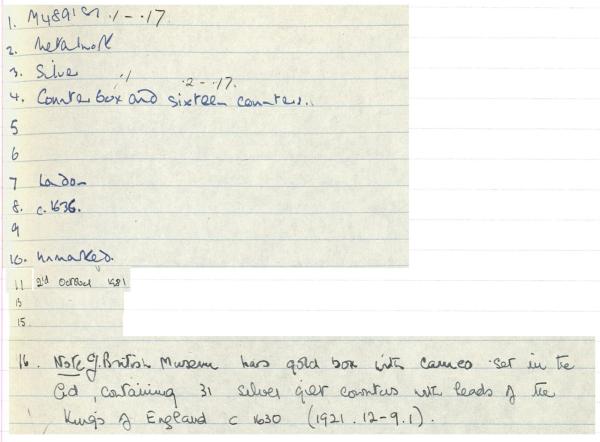 1. M489 .1 - .17
2. Metalwork
3. Silver
4. Counter box and sixteen counters.. .1 .2 - .17.
5
6
7 London
8. c.1636.
9
10. Unmarked.
11 2nd October 1981
13
15.
16. Note cf. British Museum has gold box with cameo set in the
lid, containing 31 silver gilt counters with heads of the
Kings of England c 1630 (1921.12-9.1).